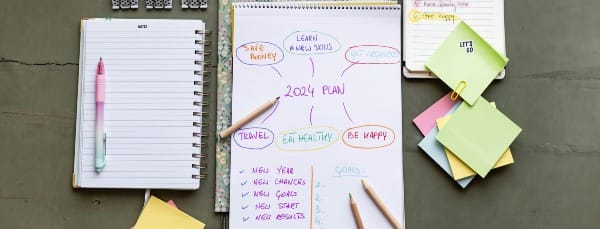 NOTES
SAVE
MONEY
LEARN
A NEW SKILLS
GET ORGANIZED
2024 PLAN
TRAVEL
EAT HEALTHY
BE HAPPY
NEW YEAR
NEW CHANCES
NEW GOALS
NEW START
NEW RESULTS
GOALS:
1.
2.
3.
4.
LET'S
GO
HAPPY